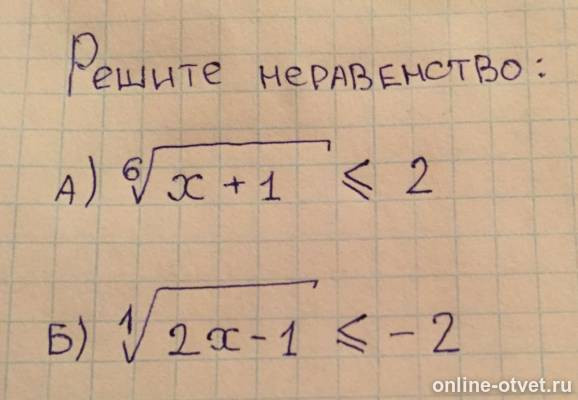 Решите неравенство:
А) ⁶√(x + 1) ⩽ 2
Б) ¹√(2x - 1) ⩽ - 2
online-otvet.ru